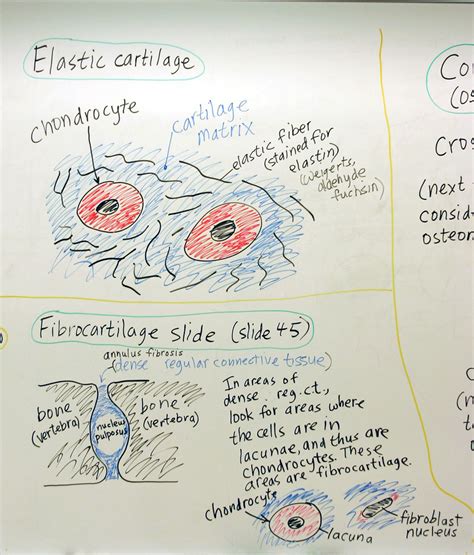 Elastic cartilage
chondrocyte
cartilage
matrix
elastic fiber
(stained for
elastin)
(weigerts,
aldehyde
fuchsin)
Fibrocartilage slide (slide 45)
annulus fibrosis
(dense regular connective tissue)
bone
(vertebra)
nucleus
pulposus
bone
(vertebra)
In areas of
dense. reg. ct.,
look for areas where
the cells are in
lacunae, and thus are
chondrocytes. These
areas are fibrocartilage.
chondrocyte
lacuna
fibroblast
nucleus
Co
(os
Cros
(next
consid
osteon